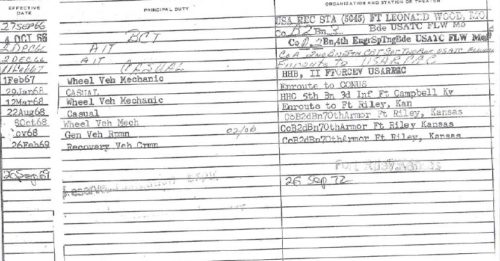 EFFECTIVE DATE PRINCIPAL DUTY ORGANIZATION AND STATION OR THEATER
27 Sep 66 USA REC STA (5045) FT LEONARD WOOD, MO.
4 OCT 66 BCT Co B 2 Bn 3 Bde USATC FLW Mo
2 DEC 66 AIT Co 2 Bn, 4th Engr SpTngBde USATC FLW
2 DEC 66 AIT
CASUAL Enroute to USARREC
1Feb67 Wheel Veh Mechanic HHB, II FFORCEV USARREC
29Jan68 CASUAL Enroute to CONUS
12Mar68 Wheel Veh Mechanic HHC 5th Bn 3d Inf Ft Campbell Ky
22Aug68 Casual Enroute to Ft Riley, Kan
8Oct68 Wheel Veh Mech CoB2dBn70thArmor Ft Riley Kansas
ov68 Gen Veh Rpmn CoB2dBn70thArmor Ft Riley Kansas
26Feb69 Recovery Veh Crmn CoB2dBn70thArmor Ft Riley Kansas
26 Sep 26 Sep 72